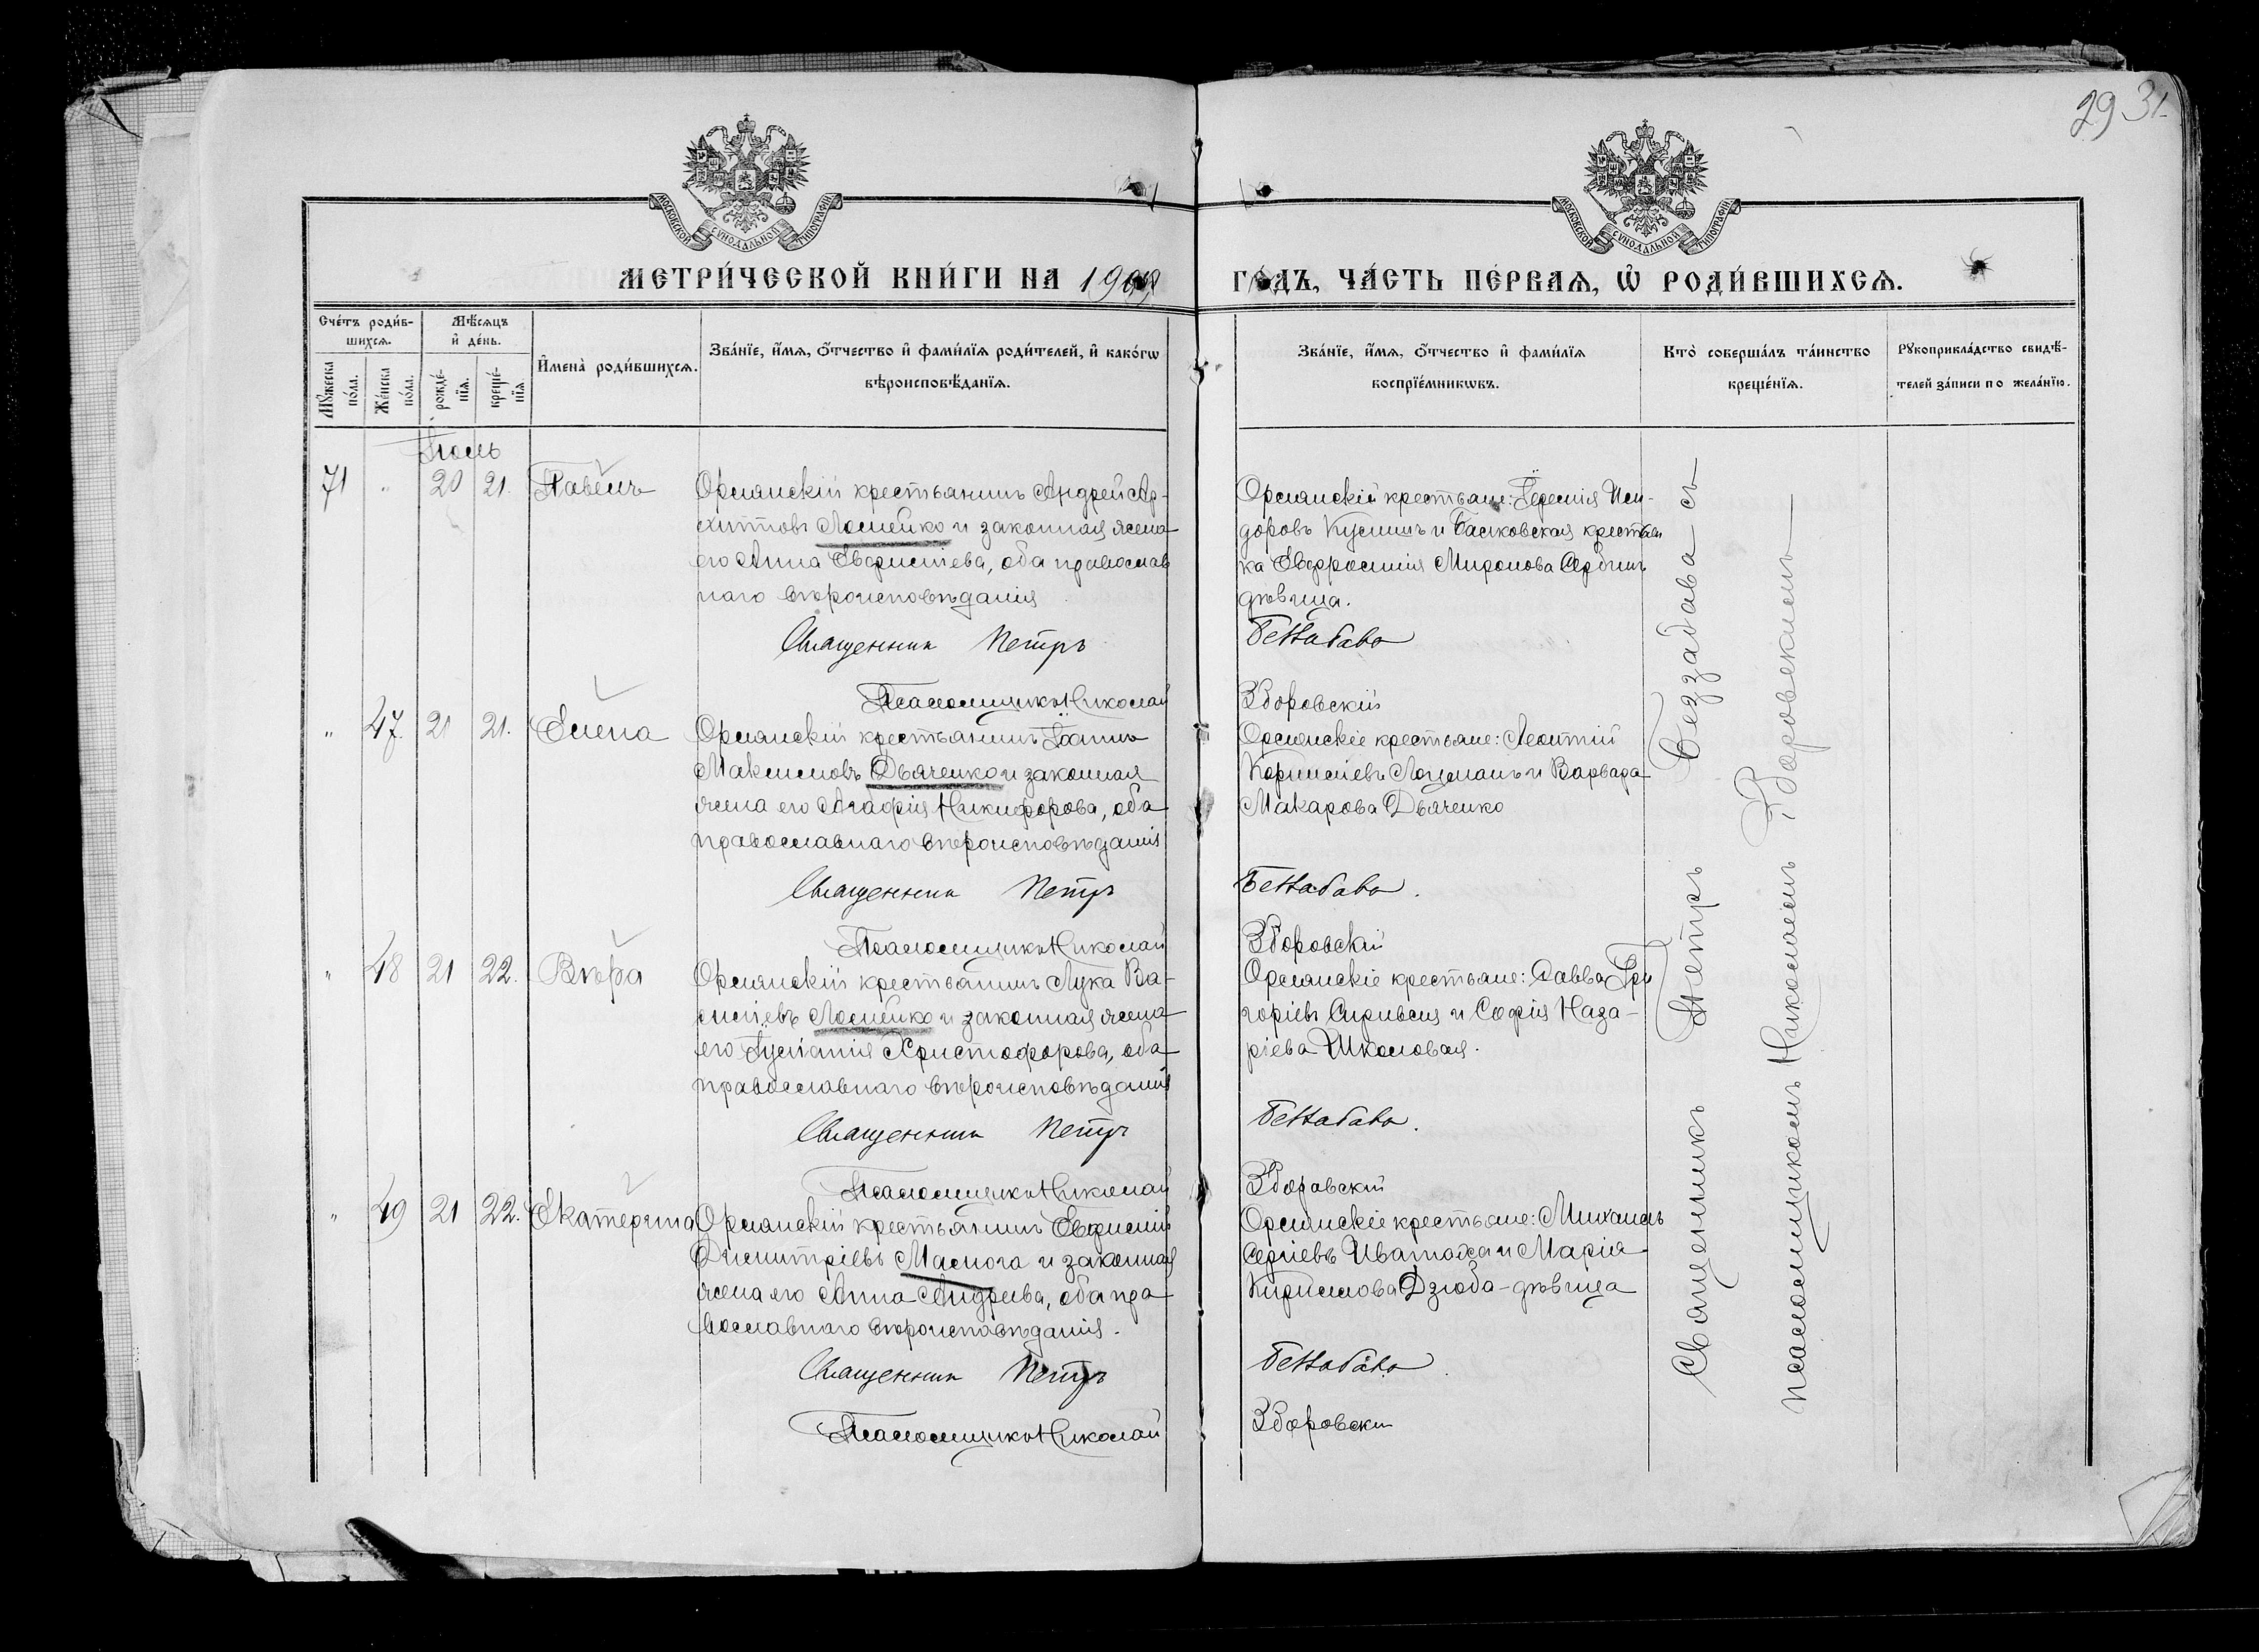 29 31
МОСКОВСКОЙ СѴНОДАЛЬНОЙ ТИПОГРАФІИ
МОСКОВСКОЙ СѴНОДАЛЬНОЙ ТИПОГРАФІИ
МЕТРИ́ЧЕСКОЙ КНИ́ГИ НА 190
ГО́ДЪ, ЧА́СТЬ ПЕ́РВАѦ, Ѡ҆ РОДИ́ВШИХСѦ.
Сче́тъ роди́в-
шихсѧ.
Мꙋ́жеска по́ла.
Же́нска по́ла.
Мѣ́сѧцъ
и҆ де́нь.
рожде́-
нїѧ.
креще́-
нїѧ.
И҆мена̀ роди́вшихсѧ.
Зва́нїе, и҆́мѧ, ѻ҆́тчество и҆ фами́лїѧ роди́телей, и҆ како́гѡ
вѣроисповѣ́данїѧ.
Зва́нїе, и҆́мѧ, ѻ҆́тчество и҆ фами́лїѧ
воспрїе́мникѡвъ.
Кто̀ соверша́лъ та́инство
креще́нїѧ.
Рꙋкоприкла́дство свидѣ́-
телей за́писи по жела́нїю.
Іюль
71 " 20 21. Павелъ
Орлянскій крестьянинъ Андрей Ар-
хиповъ Ломейко и законная жена
его Анна Евфиміева, оба православ
наго вѣроисповѣданія
Священник Петръ
Псаломщикъ Николай
Орлянскій крестьян: Іеремія Иси-
доровъ Кулишъ и Балковская крестьян
ка Евфросинія Миронова Сербинъ
дѣвица.
Беззабава
Зборовскій
" 47. 21 21. Елена
Орлянскій крестьянинъ Іоаннъ
Максимовъ Дьяченко и законная
жена его Агафія Никифорова, оба
православнаго вѣроисповѣданія
Священник Петръ
Псаломщикъ Николай
Орлянскіе крестьяне: Леонтій
Корниліевъ Лоцманъ и Варвара
Макарова Дьяченко
Беззабава.
Зборовскій
" 48 21 22. Вѣра
Орлянскій крестьянинъ Лука Ва-
силіевъ Ломейко и законная жена
его Іуліанія Христофорова, оба
православнаго вѣроисповѣданія
Священник Петръ
Псаломщикъ Николай
Орлянскіе крестьяне: Савва Гри
горіевъ и Софія Наза-
ріева Школовая.
Беззабава.
Зборовскій
" 49 21 22. Екатерина
Орлянскій крестьянинъ Евфимій
Димитріевъ Малюга и законная
жена его Анна Андреева, оба пра
вославнаго вѣроисповѣданія.
Священник Петръ
Псаломщикъ Николай
Орлянскіе крестьяне: Михаилъ
Сергіевъ Иватаха и Марія
Кириллова Дзюба - дѣвица
Беззабава.
Зборовскій
Священникъ Петръ Беззабава съ
псаломщикомъ Николаемъ Зборовскимъ